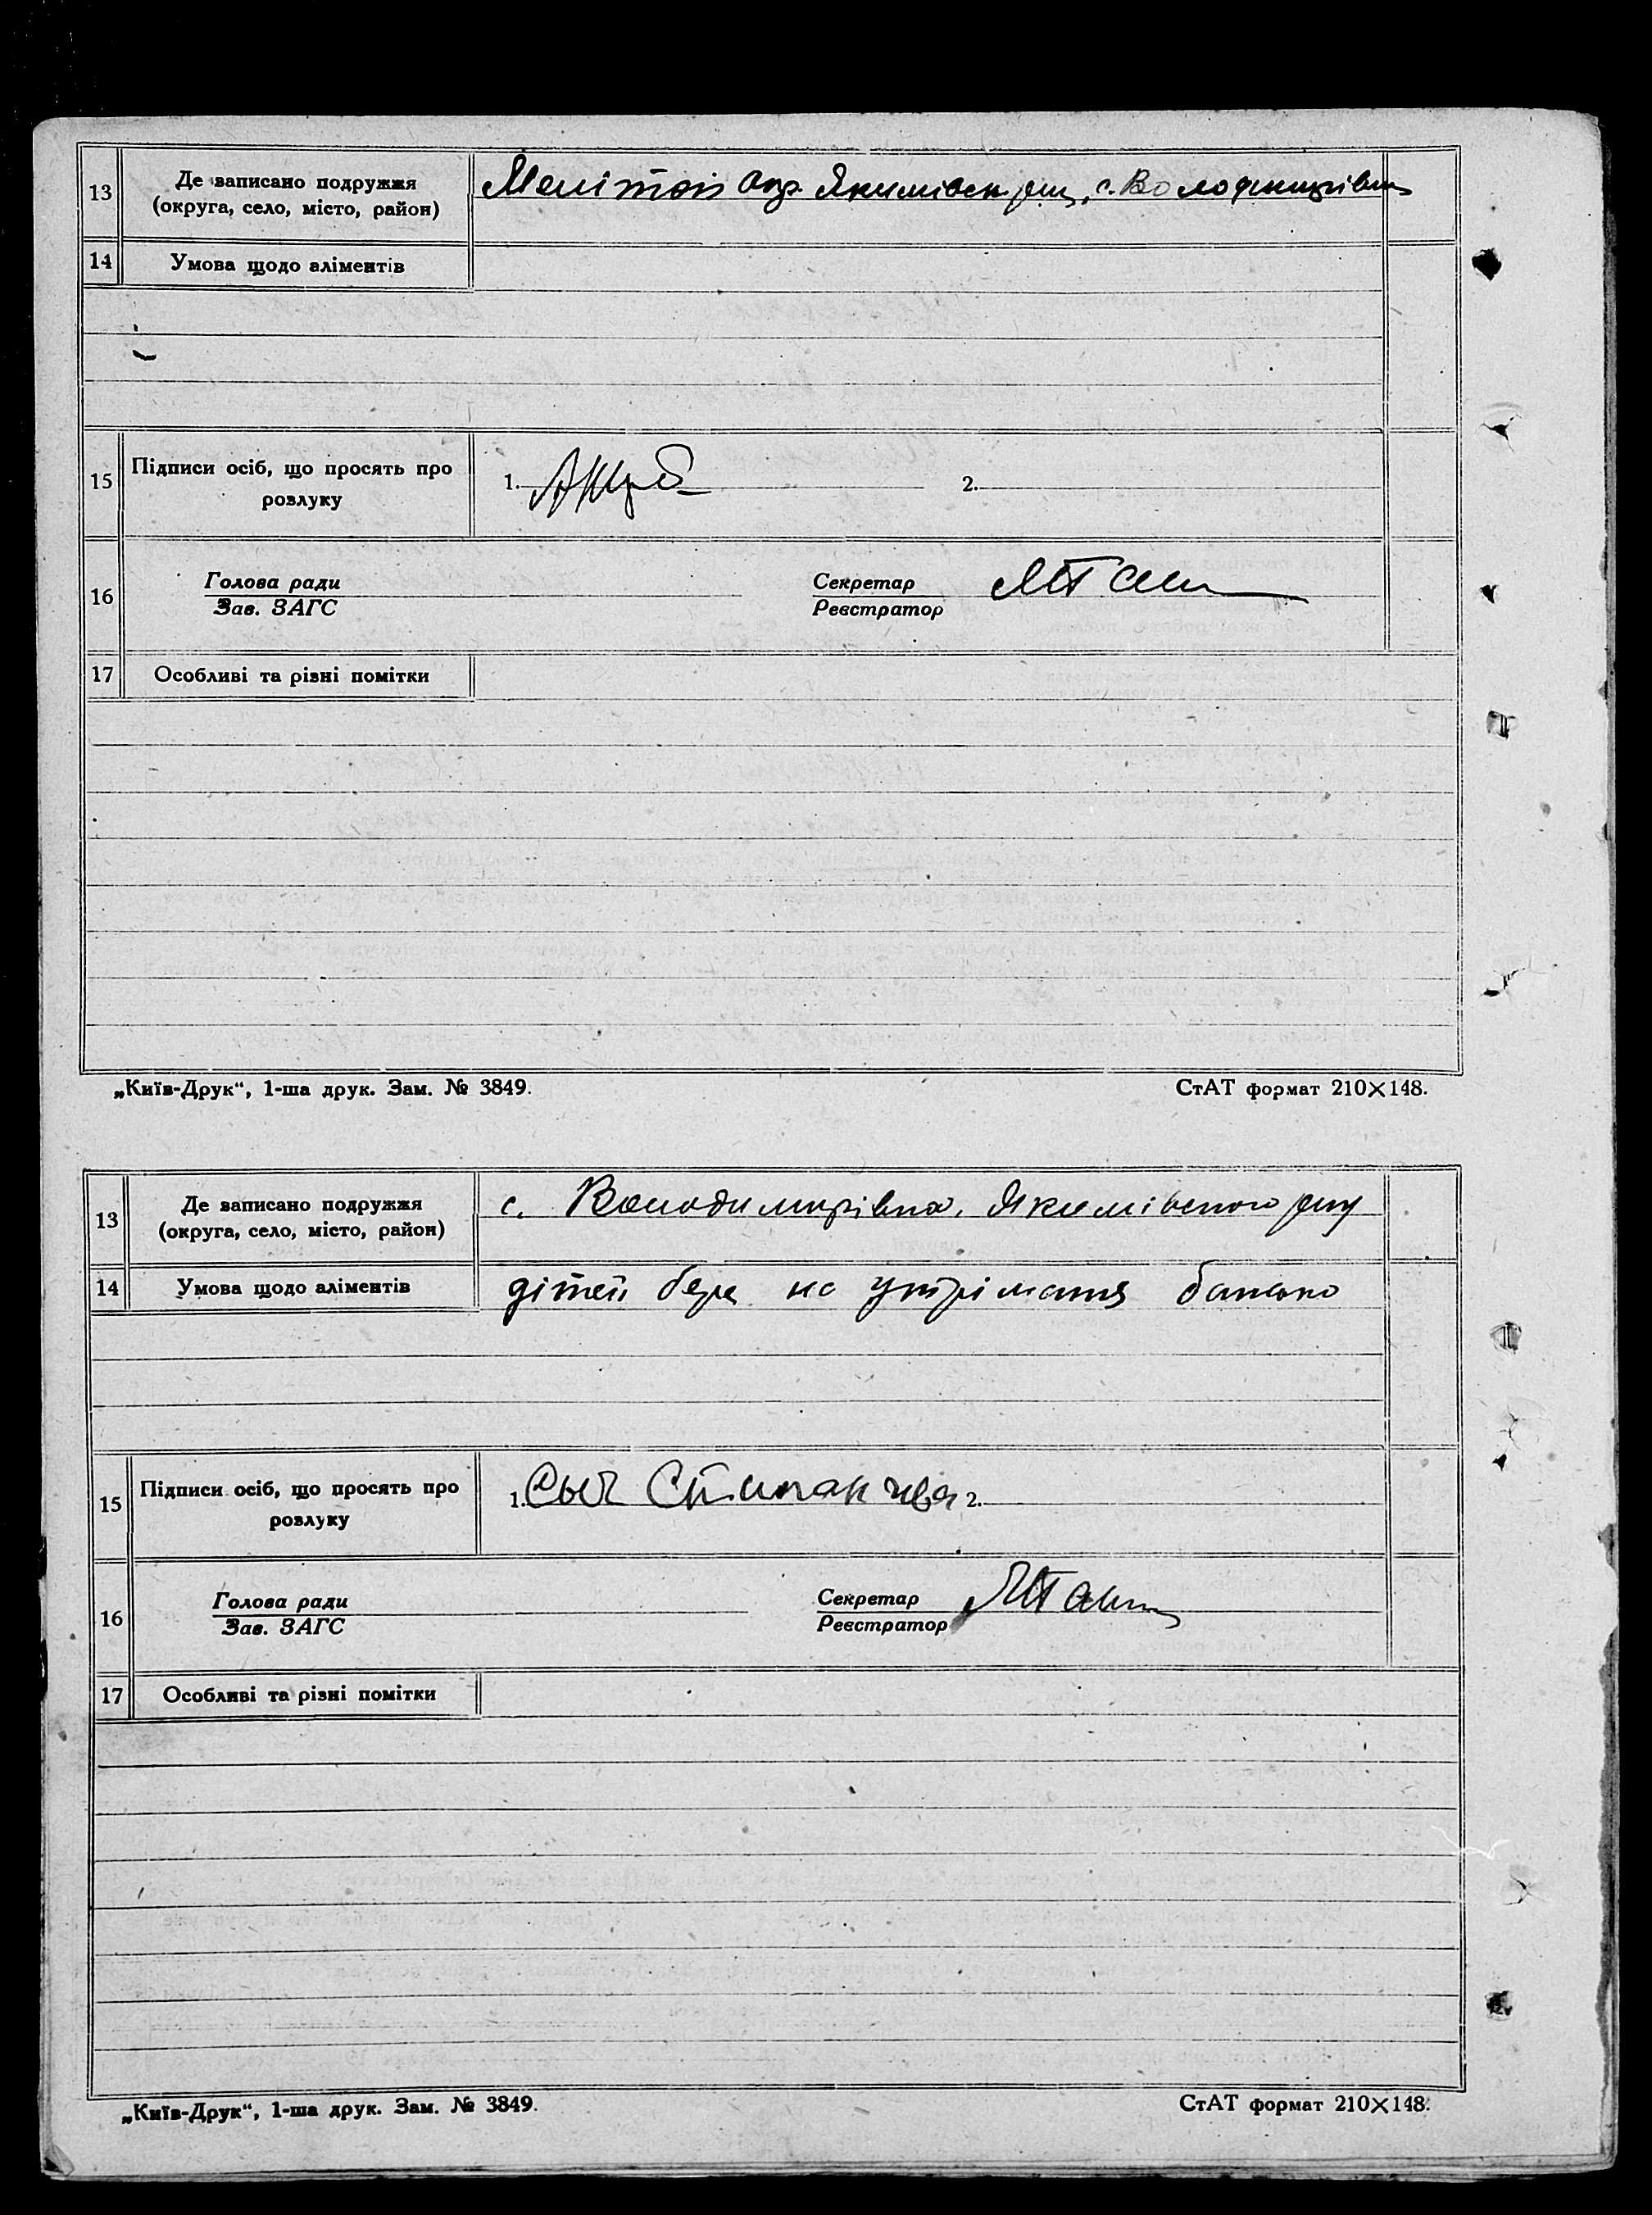 13 Де записано подружжя (округа, село, місто, район) Меліток окр. Якимівск. рну, с. Володимирівка
14 Умова щодо аліментів
15 Підписи осіб, що просять про розлуку 1. 2.
16 Голова ради Секретар
Зав. ЗАГС Реєстратор
17 Особливі та різні помітки
„Київ-Друк“, 1-ша друк. Зам. № 3849. СтАТ формат 210×148.
13 Де записано подружжя (округа, село, місто, район) с. Володимирівка, Якимівського рну
14 Умова щодо аліментів дітей бере на утрімання батько
15 Підписи осіб, що просять про розлуку 1. Сыч 2.
16 Голова ради Секретар
Зав. ЗАГС Реєстратор
17 Особливі та різні помітки
„Київ-Друк“, 1-ша друк. Зам. № 3849. СтАТ формат 210×148.